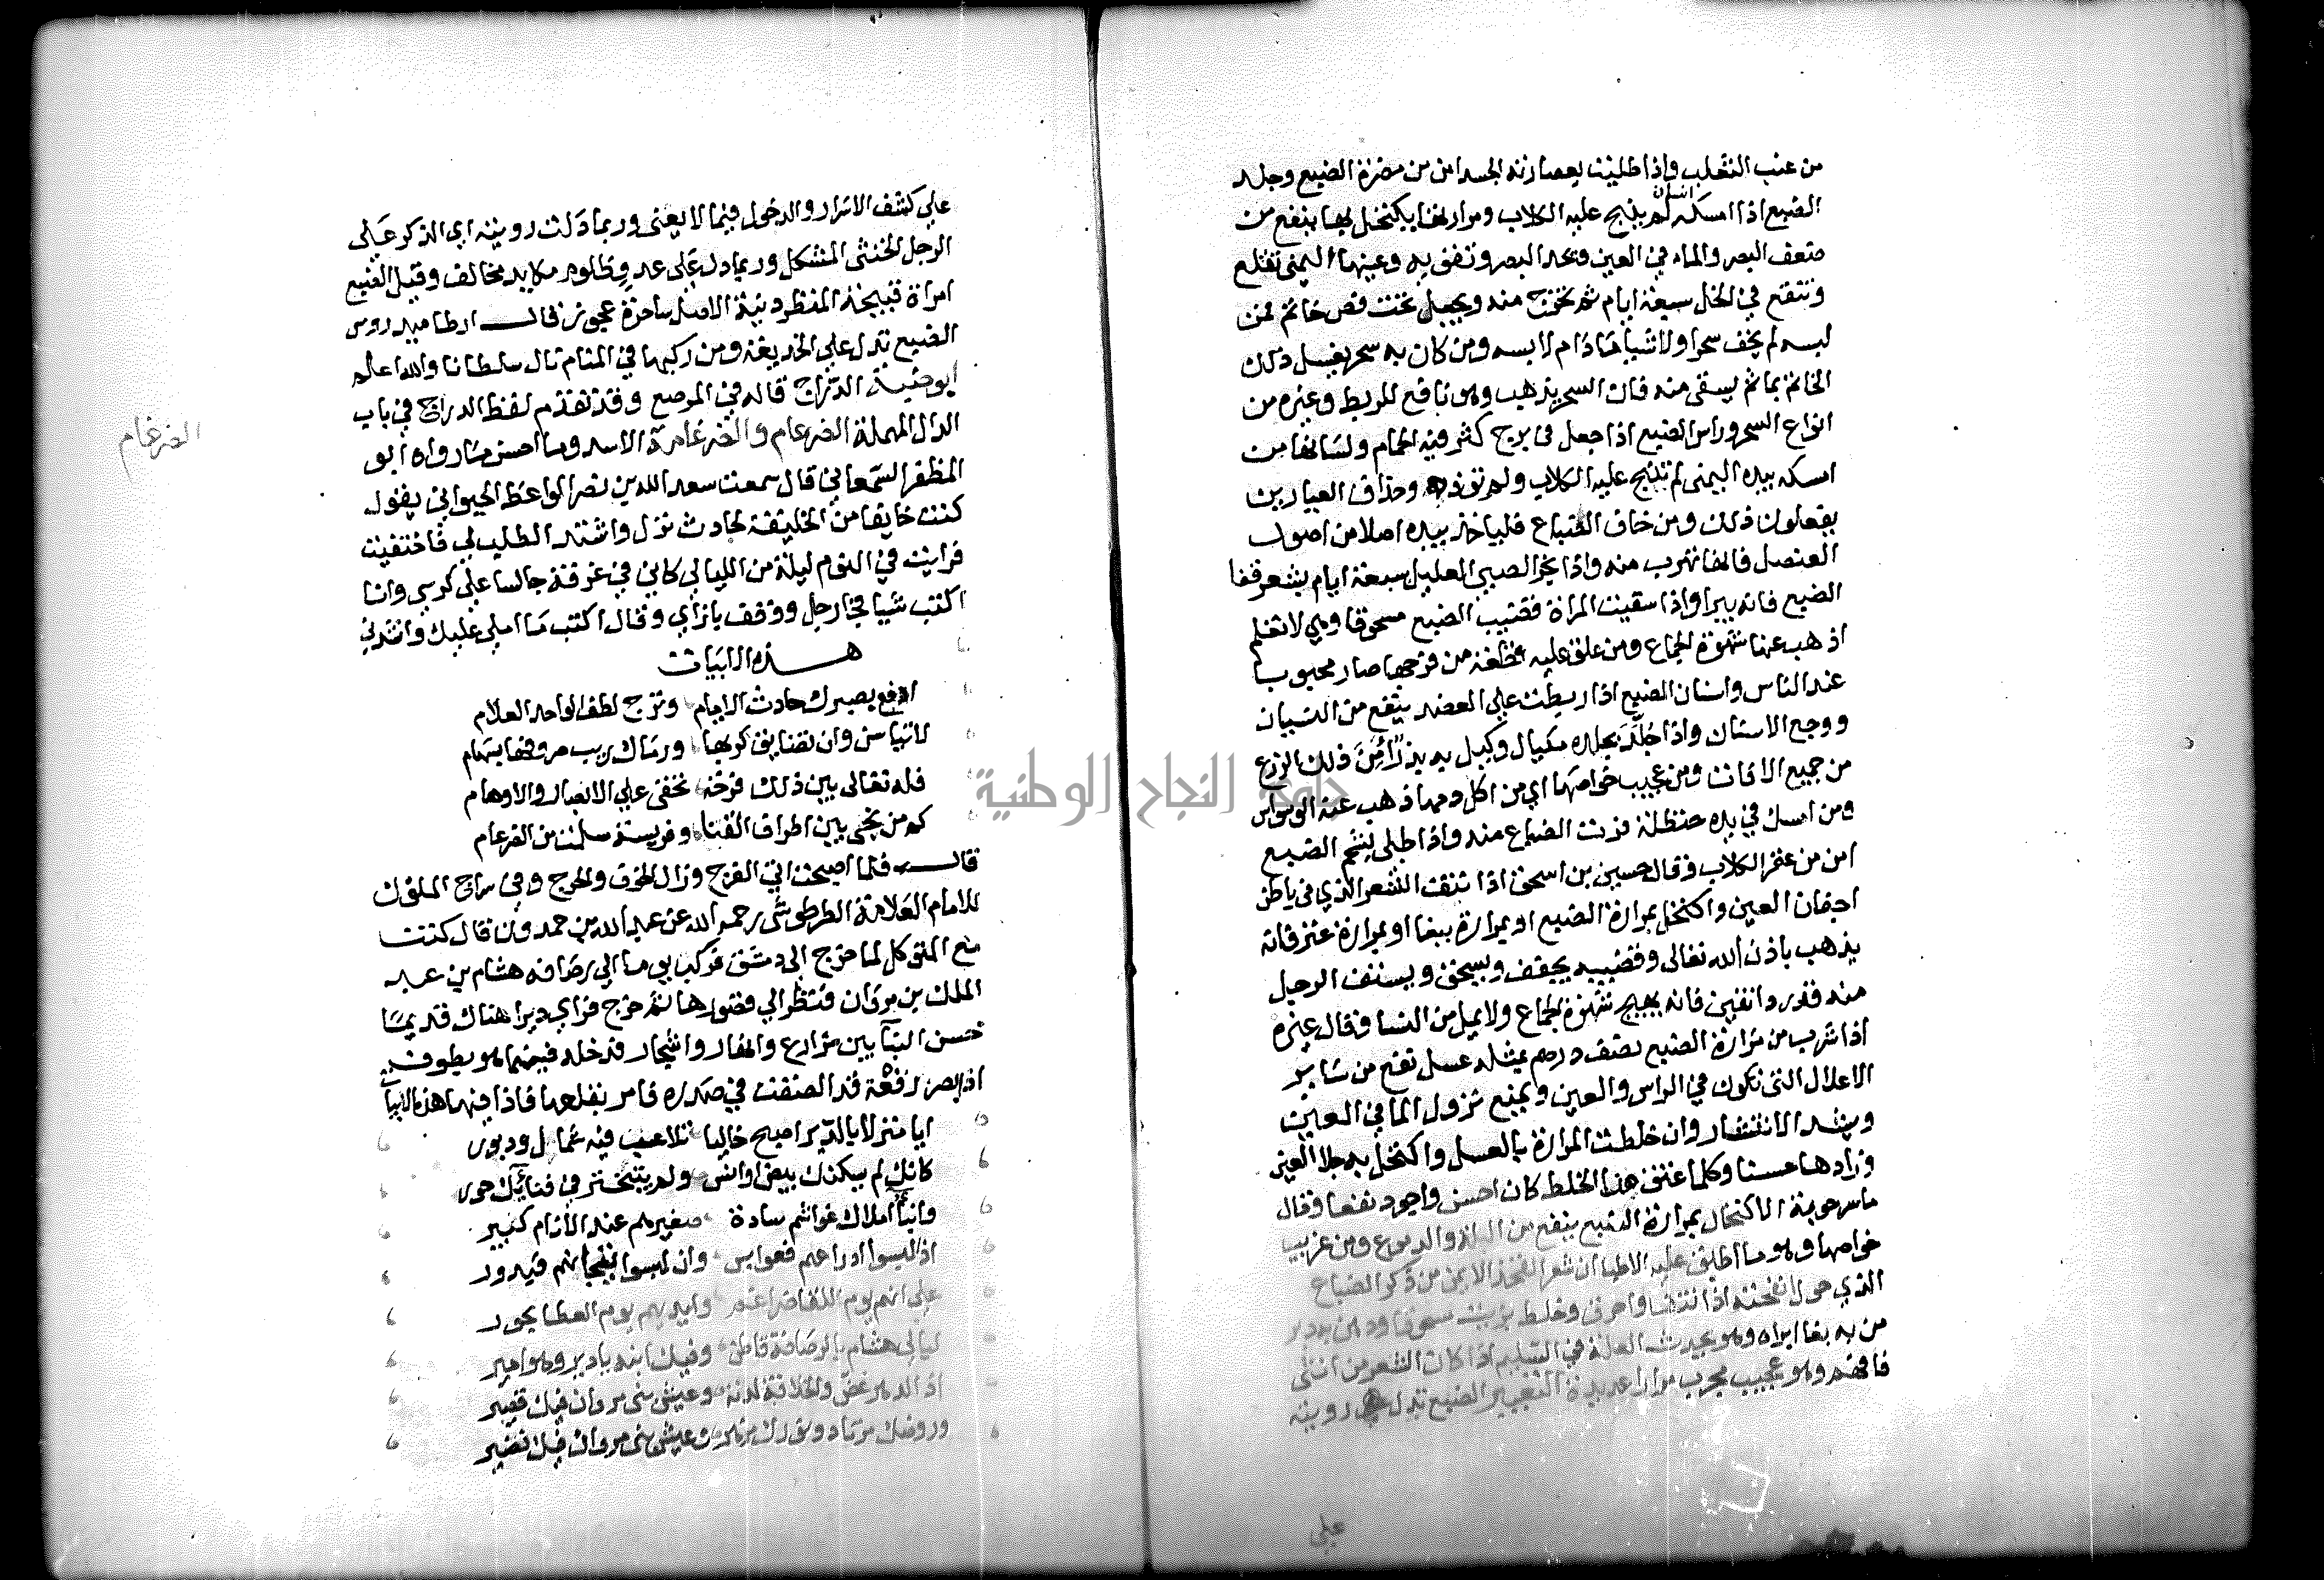 من عنب الثعلب واذا طليت بعصارته الجسد امن من مضرة الضبع وجلد
الضبع اذا امسكه انسان لم ينبح عليه الكلاب ومرارتها يكتحل بها ينفع من
ضعف البصر والماء في العين ويحد البصر وعينها اليمنى تقلع
وتنقع في الخل سبعة ايام ثم تخرج منه ويجعل تحت فص خاتم فمن
لبسه لم يخف سحرا ولا شيا ما دام لابسه ومن كان به سحر يغسل ذلك
الخاتم بما ثم يسقى منه فان السحر يذهب وهو نافع للربط وغيره من
انواع السحر وراس الضبع اذا جعل في برج كثر فيه الحمام ولسانها من
امسكه بيده اليمنى لم تنبح عليه الكلاب ولم توذه وحذاق العيارين
يفعلون ذلك ومن خاف الضباع فلياخذ بيده اصلا من اصول
العنصل فانها تهرب منه واذا بخر الصبي العليل سبعة ايام بشعر قفا
الضبع فانه يبرا واذا سقيت المراة قضيب الضبع مسحوقا وهي لا تعلم
اذهب عنها شهوة الجماع ومن علق عليه قطعة من فرجها صار محبوبا
عند الناس واسنان الضبع اذا ربطت على العضد ينفع من النسيان
ووجع الاسنان واذا جلد بجلده مكيال وكيل به بذر امن ذلك الزرع
من جميع الافات ومن عجيب خواصها اي من اكل دمها ذهب عنه الوسواس
ومن امسك في يده حنظلة فرت الضباع منه واذا طلي بشحم الضبع
امن من عقر الكلاب وقال حسين بن اسحق اذا نتفت الشعر الذي في باطن
اجفان العين واكتحل بمرارة الضبع او بمرارة ببغا او بمرارة عنز فانه
يذهب باذن الله تعالى وقضيبه يجفف ويسحق ويستف الرجل
منه قدر دانقين فانه يهيج شهوة الجماع ولا يمل من النسا وقال غيره
اذا شرب من مرارة الضبع نصف درهم بمثله عسل نفع من ساير
الاعلال التي تكون في الراس والعين ويمنع نزول الما في العين
ويشد الانتشار وان خلطت المرارة بالعسل واكتحل به جلا العين
وزادها حسنا وكلما عتق هذا الخلط كان احسن واجود نفعا وقال
ماسرجوية الاكتحال بمرارة الضبع ينفع من والدموع ومن غريب
خواصها وهو ما اطبق عليه الاطبا ان شعر الفخذ الايمن من ذكر الضباع
الذي حول اذا نتف واحرق وخلط بزيت ودهن به دبر
من به بغا ابراه وهو يحدث العلة في السليم اذا كان الشعر من انثى
فافهم وهو عجيب مجرب مرارا عديدة التعبير الضبع تدل رويته
على
على كشف الاسرار والدخول فيما لا يعني وربما دلت رويته اي الذكر على
الرجل الخنثى المشكل وربما دل على عدو ظلوم مكايد مخالف وقيل الضبع
امراة قبيحة المنظر دنية الاصل ساحرة عجوز وقال ارطاميدروس
الضبع تدل على الخديعة ومن ركبها في المنام نال سلطانا والله اعلم
ابوضبة الدراج قاله في المرصع وقد تقدم لفظ الدراج في باب
الدال المهملة الضرغام والضرغامة الاسد وما احسن ما رواه ابو
المظفر السمعاني قال سمعت سعد الله بن نصر الواعظ الحيواني يقول
كنت خايفا من الخليفة لحادث نزل واشتد الطلب لي فاختفيت
فرايت في النوم ليلة من الليالي كاني في غرفة جالسا على كرسي وانا
اكتب شيا فجا رجل ووقف بازاي وقال اكتب ما املي عليك وانشدني
هذه الابيات
ادفع بصبرك حادث الايام وترج لطف الواحد العلام
لا تياسن وان تضايق كربها ورماك ريب صروفها بسهام
فله تعالى بين ذلك فرجة تخفى على الابصار والاوهام
كم من نجى بين اطراف القنا وفريسة سلمت من الضرغام
قال فلما اصبحت اتى الفرج وزال الخوف والحرج وفي سراج الملوك
للامام العلامة الطرطوشي رحمه الله عن عبد الله بن حمدون قال كنت
مع المتوكل لما خرج الى دمشق فركب يوما الى رصافة هشام بن عبد
الملك بن مروان فنظر الى قصورها ثم خرج فراى ديرا هناك قديما
حسن البنا بين مزارع وانهار واشجار فدخله فبينما هو يطوف به
اذ ابصر رقعة قد الصقت في صدره فامر بقلعها فاذا فيها هذه الابيات
ايا منزلا بالدير اصبح خاليا تلاعب فيه شمال ودبور
كانك لم يسكنك بيض اوانس ولم يتبختر في فنايك حور
وابنا املاك غواشم سادة صغيرهم عند الانام كبير
اذا لبسوا ادراعهم فعوابس وان لبسوا تيجانهم فبدور
على انهم يوم اللقا ضراغم وايديهم يوم العطا بحور
ليالي هشام بالرصافة قاطن وفيك ابنه يا دير وهو امير
اذ الدهر غض والخلافة لدنة وعيش بني مروان فيك قصير
وروضك مرتاد ونورك مزهر وعيش بني مروان فيك نضير
الضرغام
جامعة النجاح الوطنية